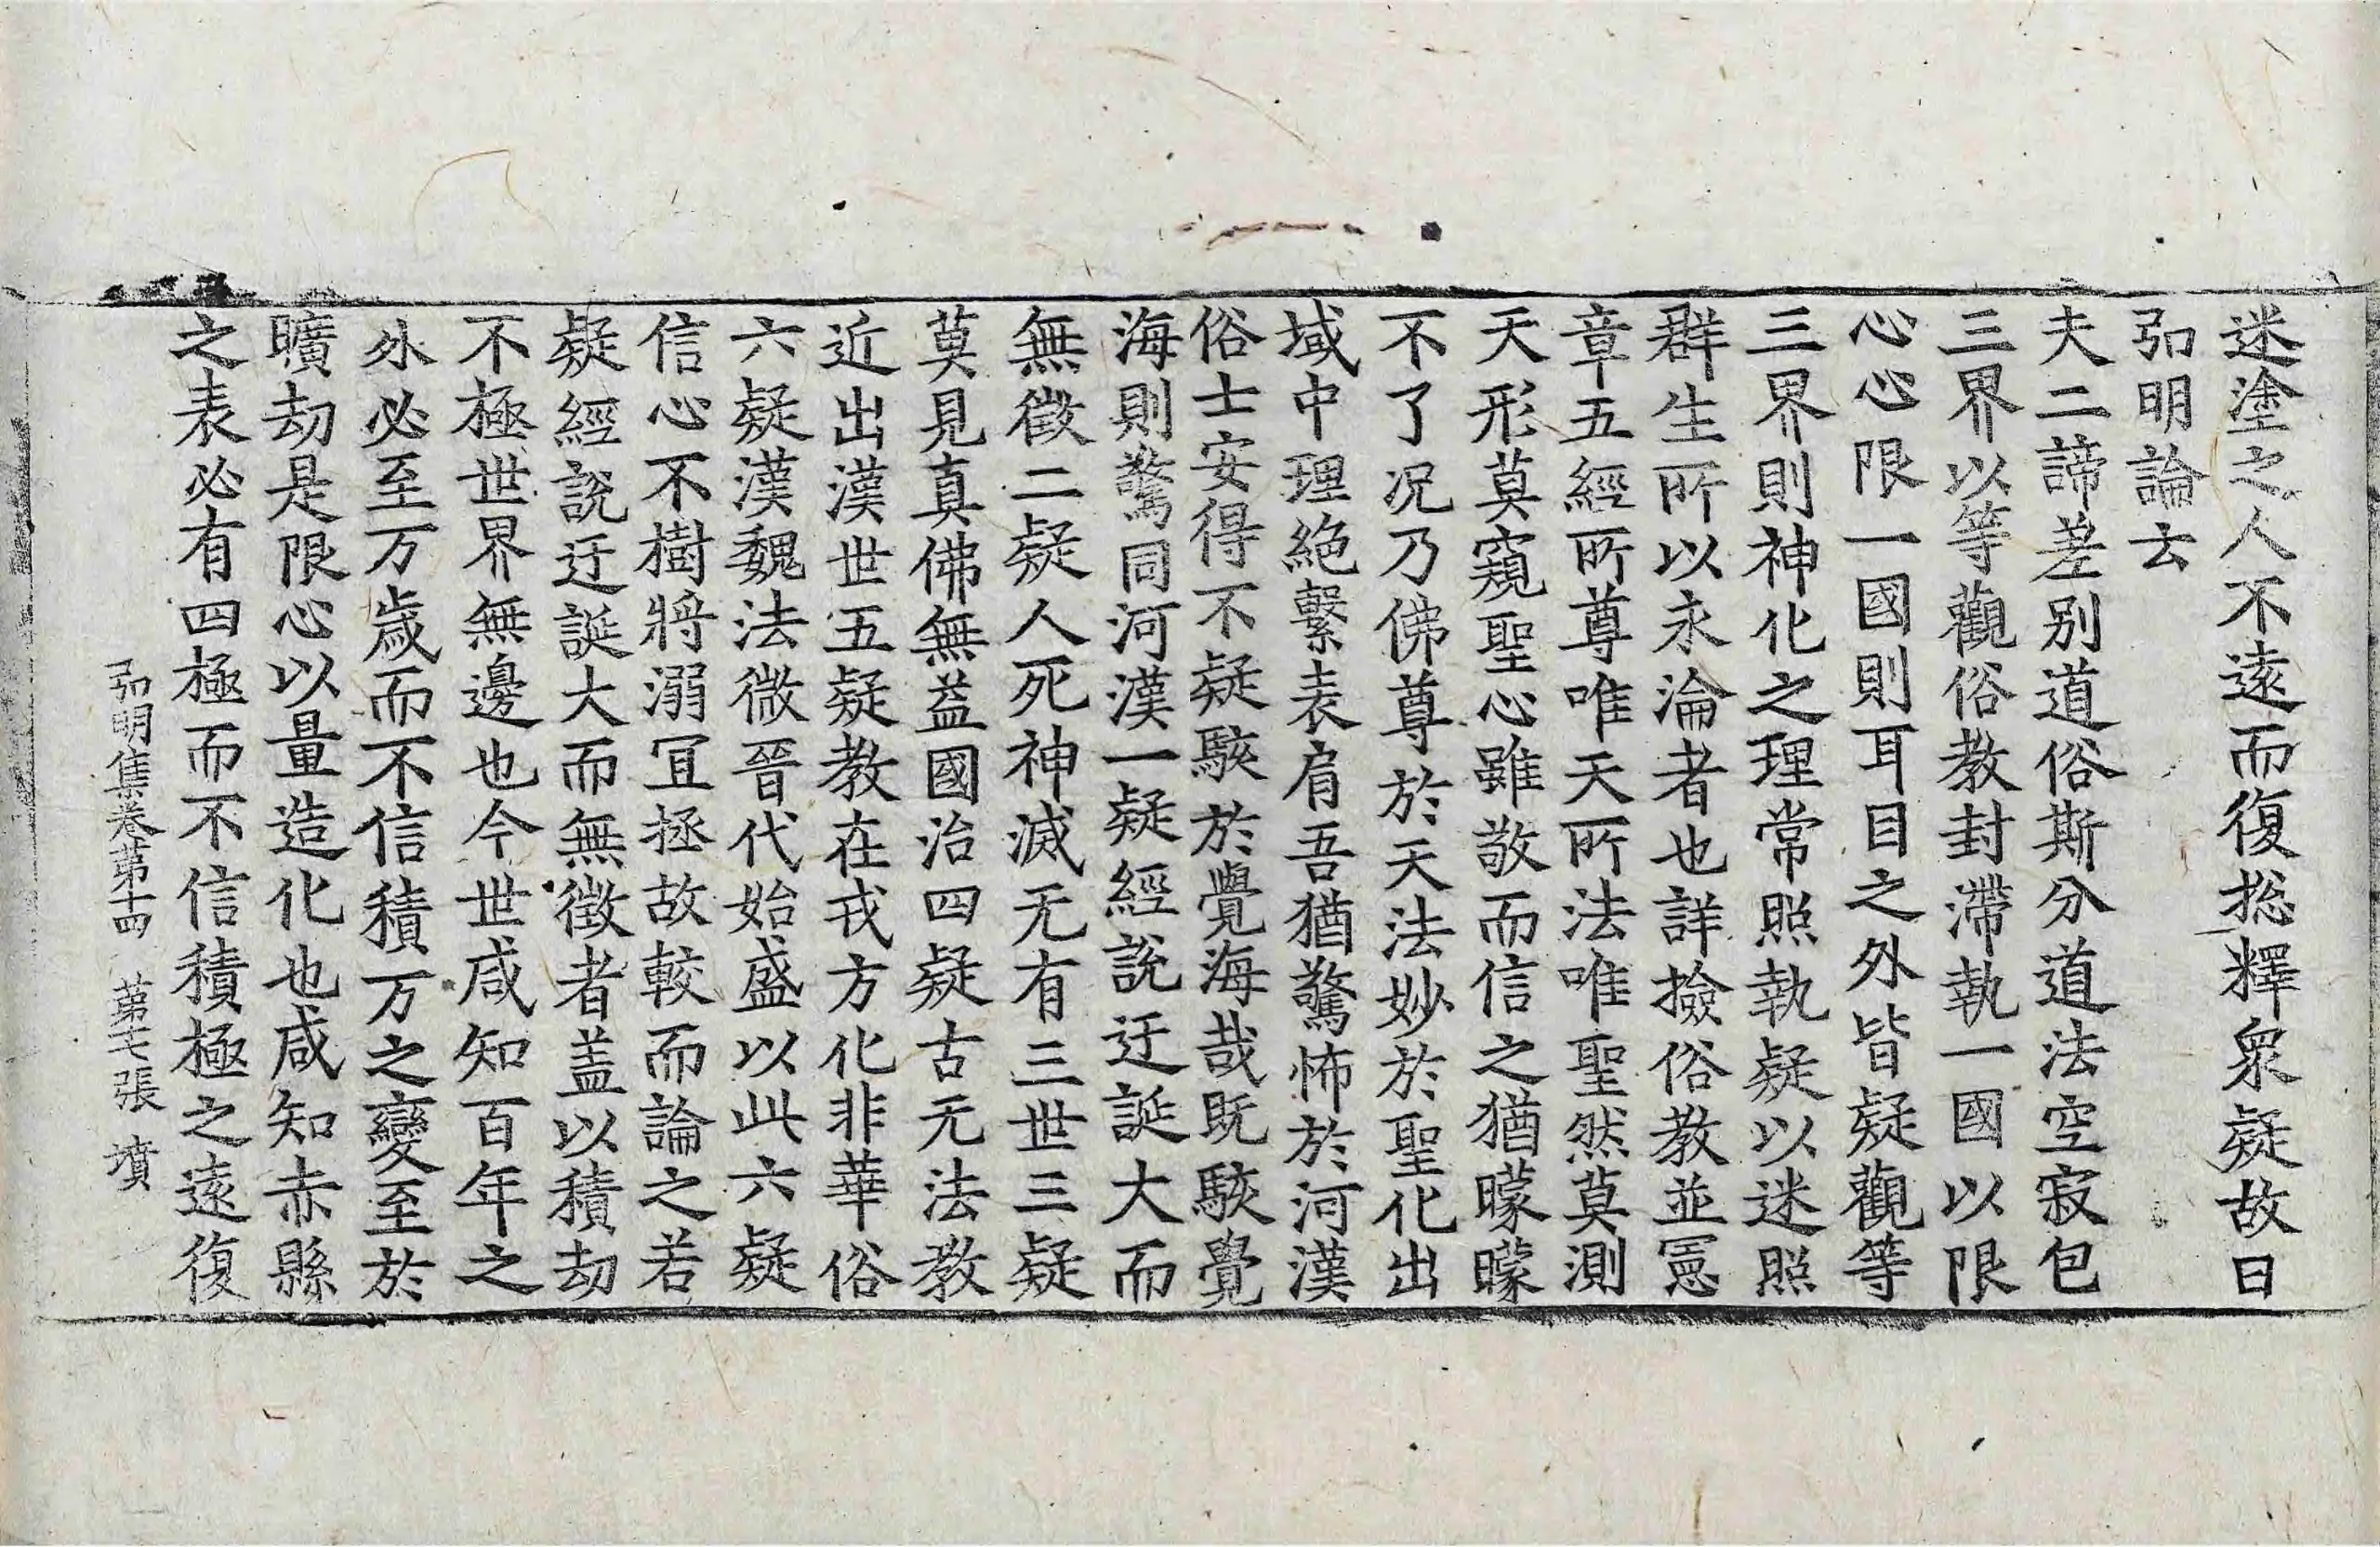 迷塗之人不遠而復捴釋衆疑故曰
弘明論云
夫二諦差別道俗斯分道法空寂包
三界以等觀俗教封滯執一國以限
心心限一國則耳目之外皆疑觀等
三界則神化之理常照執疑以迷照
群生所以永淪者也詳撿俗教並憲
章五經所尊唯天所法唯聖然莫測
天形莫窺聖心雖敬而信之猶矇矇
不了况乃佛尊於天法妙於聖化出
域中理絶繫表肩吾猶驚怖於河漢
俗士安得不疑駭於覺海哉既駭覺
海則驚同河漢一疑經說迂誕大而
無徵二疑人死神滅无有三世三疑
莫見真佛無益國治四疑古无法教
近出漢世五疑教在戎方化非華俗
六疑漢魏法微晉代始盛以此六疑
信心不樹將溺冝拯故較而論之若
疑經說迂誕大而無徵者盖以積劫
不極世界無邊也今世咸知百年之
外必至万歲而不信積万之變至於
曠劫是限心以量造化也咸知赤縣
之表必有四極而不信積極之遠復
弘明集卷第十四 第七張 墳